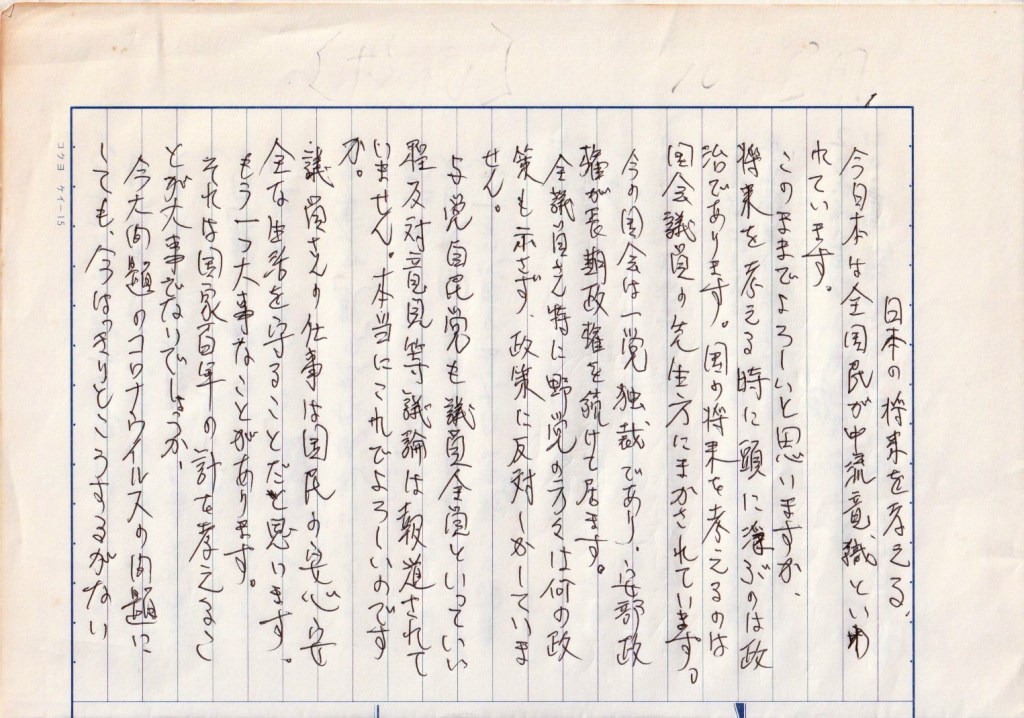 日本の将来を考える、
今日本は全国民が中流意識といわ
れています。
このままでよろしいと思いますか、
将来を考える時に頭に浮ぶのは政
治であります。国の将来を考えるのは
国会議員の先生方にまかされています。
今の国会は一党独裁であり、安部政
権が長期政権を続けて居ます。
全議員さん特に野党の方々は何の政
策も示さず、政策に反対しかしていま
せん。
与党自民党も議員全党といっていい
程反対意見等議論は報道されて
いません。本当にこれでよろしいのです
か。
議員さんの仕事は国民の安心安
全な生活を守ることだと思います。
もう一つ大事なことがあります。
それは国家百年の計を考えるこ
とが大事でないでしょうか、
今大問題のコロナウイルスの問題に
しても、今はっきりとこうするがない
コクヨ ケイ-15